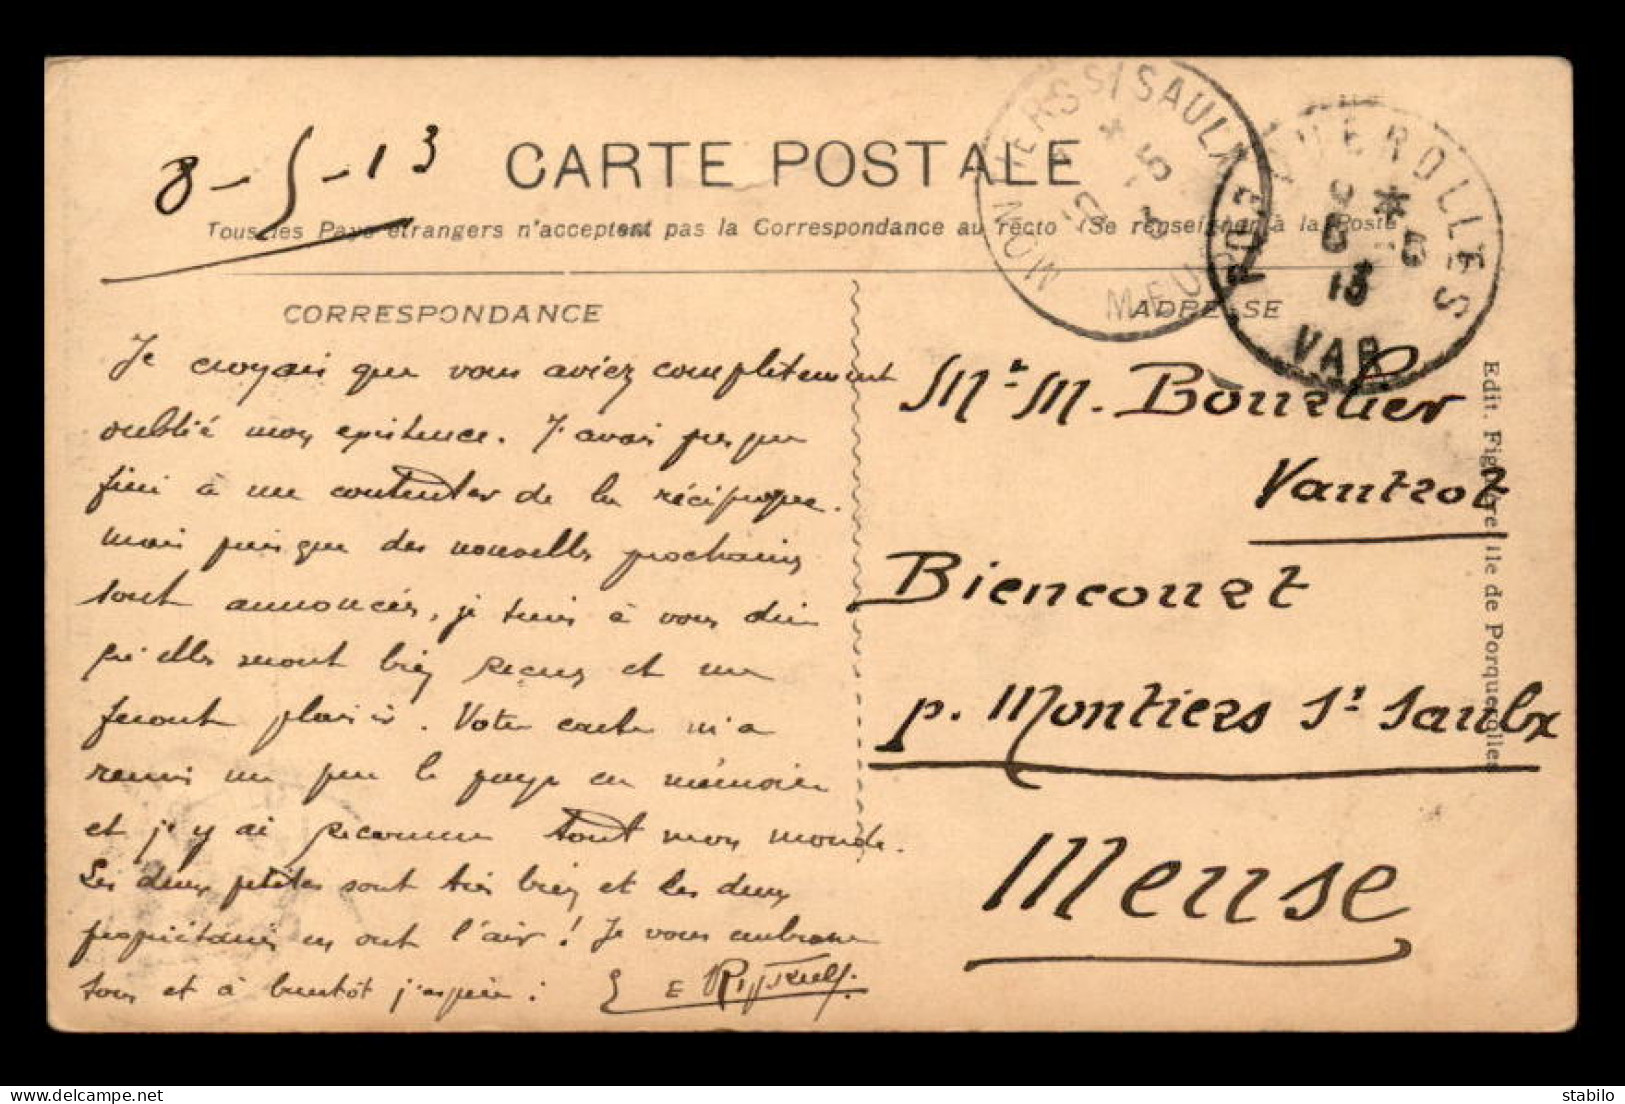 8-5-13
CARTE POSTALE
Tous les Pays étrangers n'acceptent pas la Correspondance au recto (Se renseigner à la Poste
CORRESPONDANCE
Je croyais que vous aviez complètement
oublié mon existence. J'avais presque
fini à me contenter de la réciproque.
mais puisque des nouvelles prochaines
sont annoncées, je tiens à vous dire
qu'elles seront bien reçues et me
feront plaisir. Votre carte m'a
remis un peu le pays en mémoire
et j'y ai reconnu tout mon monde.
Les deux petites sont très bien et les deux
propriétaires en ont l'air! Je vous embrasse
tous et à bientôt j'espère.
E
MONTIERS S/ SAULX
MEUSE
PORQUEROLLES
8 * 5
13
VAR
ADRESSE
Mr M. Bourlier
Vautrot
Biencourt
p. Montiers St Saulx
Meuse
Edit. Figuière île de Porquerolles
delcampe.net
stabilo